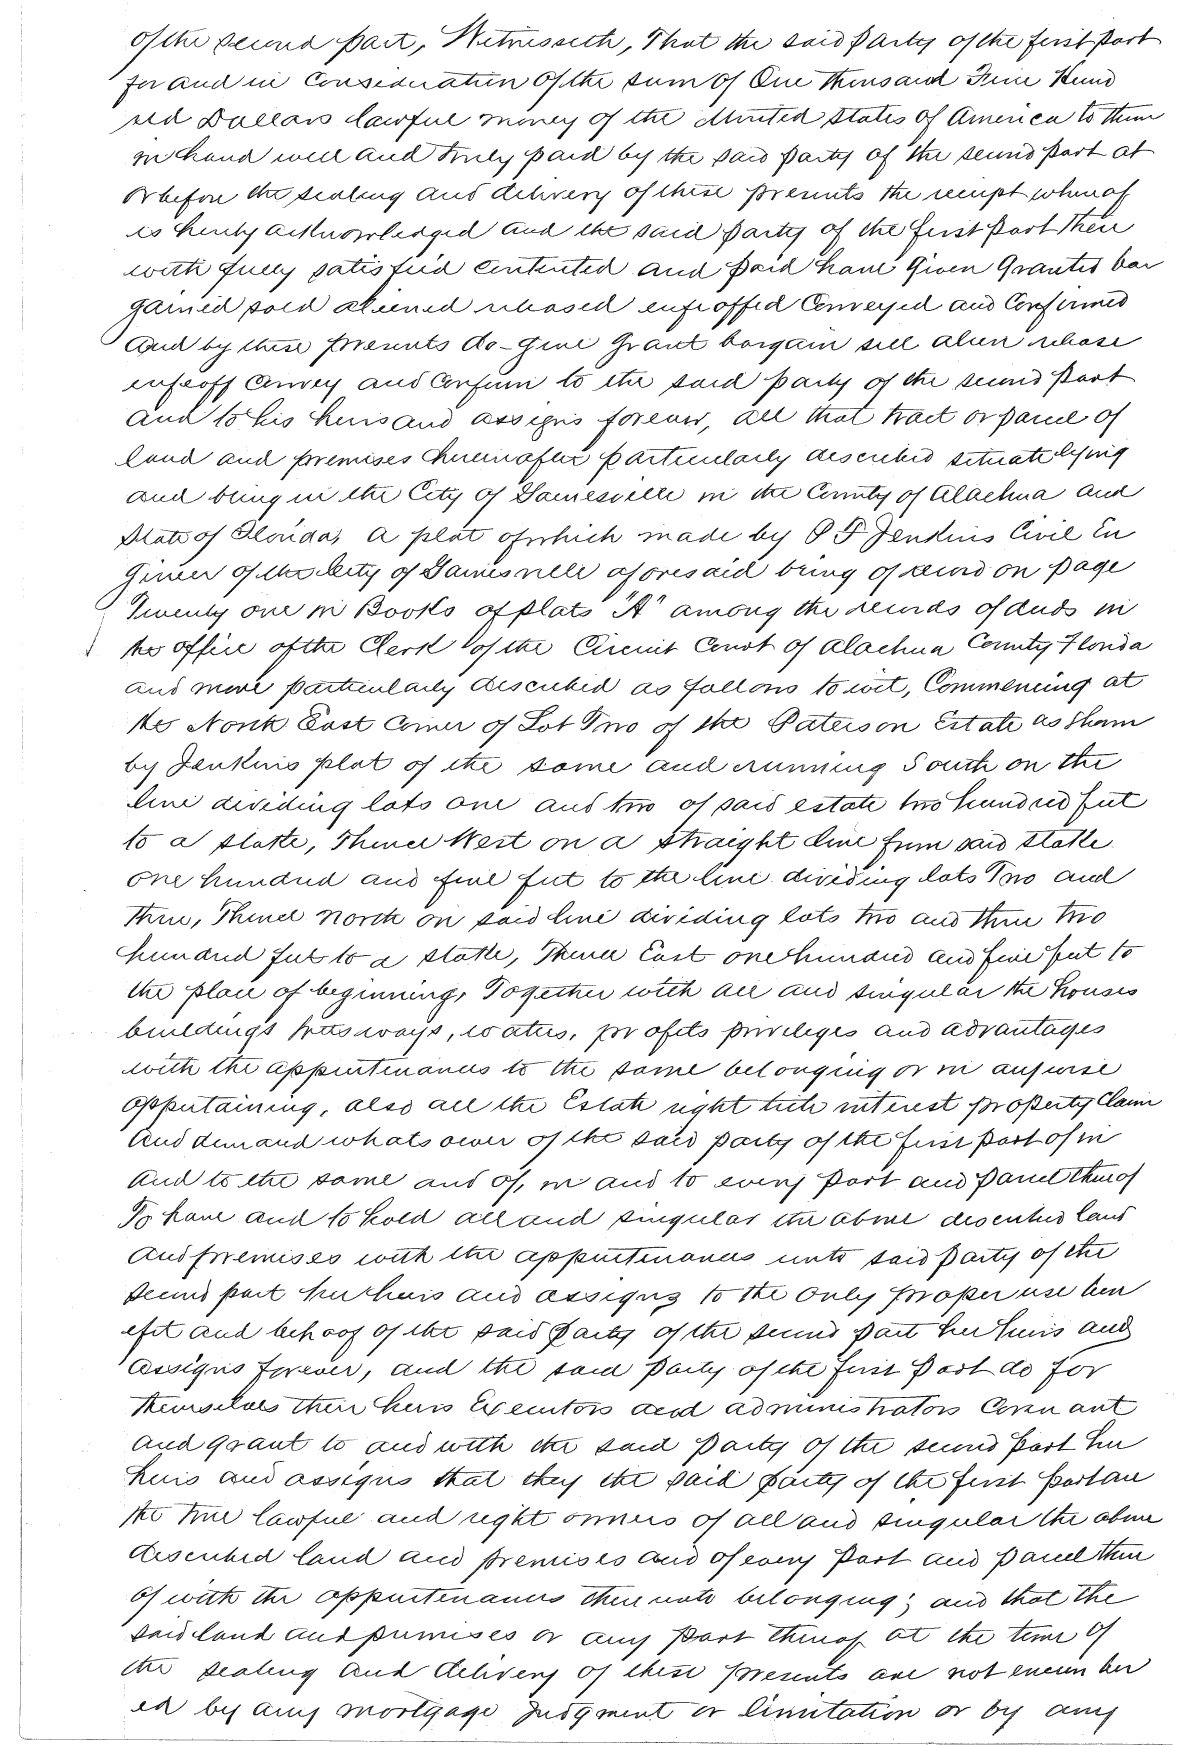 of the second part, Witnesseth, That the said Party of the first Part
for and in Consideration of the sum of One thousand Five Hund
red Dollars lawful money of the United States of America to them
in hand well and truly paid by the said party of the second Part at
or before the sealing and delivery of these presents the receipt whereof
is hereby acknowledged and the said party of the first Part there
with fully satisfied contented and Paid have Given Granted bar
gained sold aliened released enfeoffed Conveyed and Confirmed
and by these presents do-Give Grant bargain sell alien release
enfeoff Convey and Confirm to the said party of the second Part
and to his heirs and assigns forever, all that tract or parcel of
land and premises hereinafter particularly described situate lying
and being in the City of Gainesville in the County of Alachua and
State of Florida, A plat of which made by P F Jenkins Civil En
gineer of the City of Gainesville aforesaid being of record on page
Twenty one in Books of plats "A" among the records of deeds in
the office of the Clerk of the Circuit Court of Alachua County Florida
and more particularly described as follows to wit, Commencing at
the North East Corner of Lot Two of the Paterson Estate as Shown
by Jenkins plat of the same and running South on the
line dividing lots one and two of said estate two hundred feet
to a stake, Thence West on a straight line from said stake
one hundred and five feet to the line dividing lots Two and
three, Thence North on said line dividing lots two and three two
hundred feet to a stake, Thence East one hundred and five feet to
the place of beginning, Together with all and singular the houses
buildings trees ways, waters, profits privileges and advantages
with the appurtenances to the same belonging or in anywise
appurtaining, also all the Estate right title interest property Claim
And demand whatsoever of the said party of the first Part of in
and to the same and of, in and to every Part and Parcel thereof
To have and to hold all and singular the above described land
and premises with the appurtenances unto said Party of the
second part her heirs and assigns to the only proper use ben
efit and behoof of the said Party of the second Part her heirs and
assigns forever, and the said Party of the first Part do for
themselves their heirs Executors and administrators Covenant
and grant to and with the said Party of the second Part her
heirs and assigns that they the said party of the first Part are
the true lawful and right owners of all and singular the above
described land and premises and of every Part and Parcel there
of with the appurtenances thereunto belonging; and that the
said land and premises or any Part thereof at the time of
the sealing and delivery of these presents are not encumber
ed by any mortgage Judgment or limitation or by any